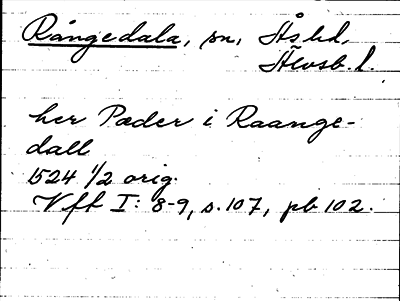 Rångedala, sn, Ås hd,
Älvsb. l.
her Pæder i Raange-
dall
1524 1/2 orig.
Vff I: 8-9, s. 107, pb 102.